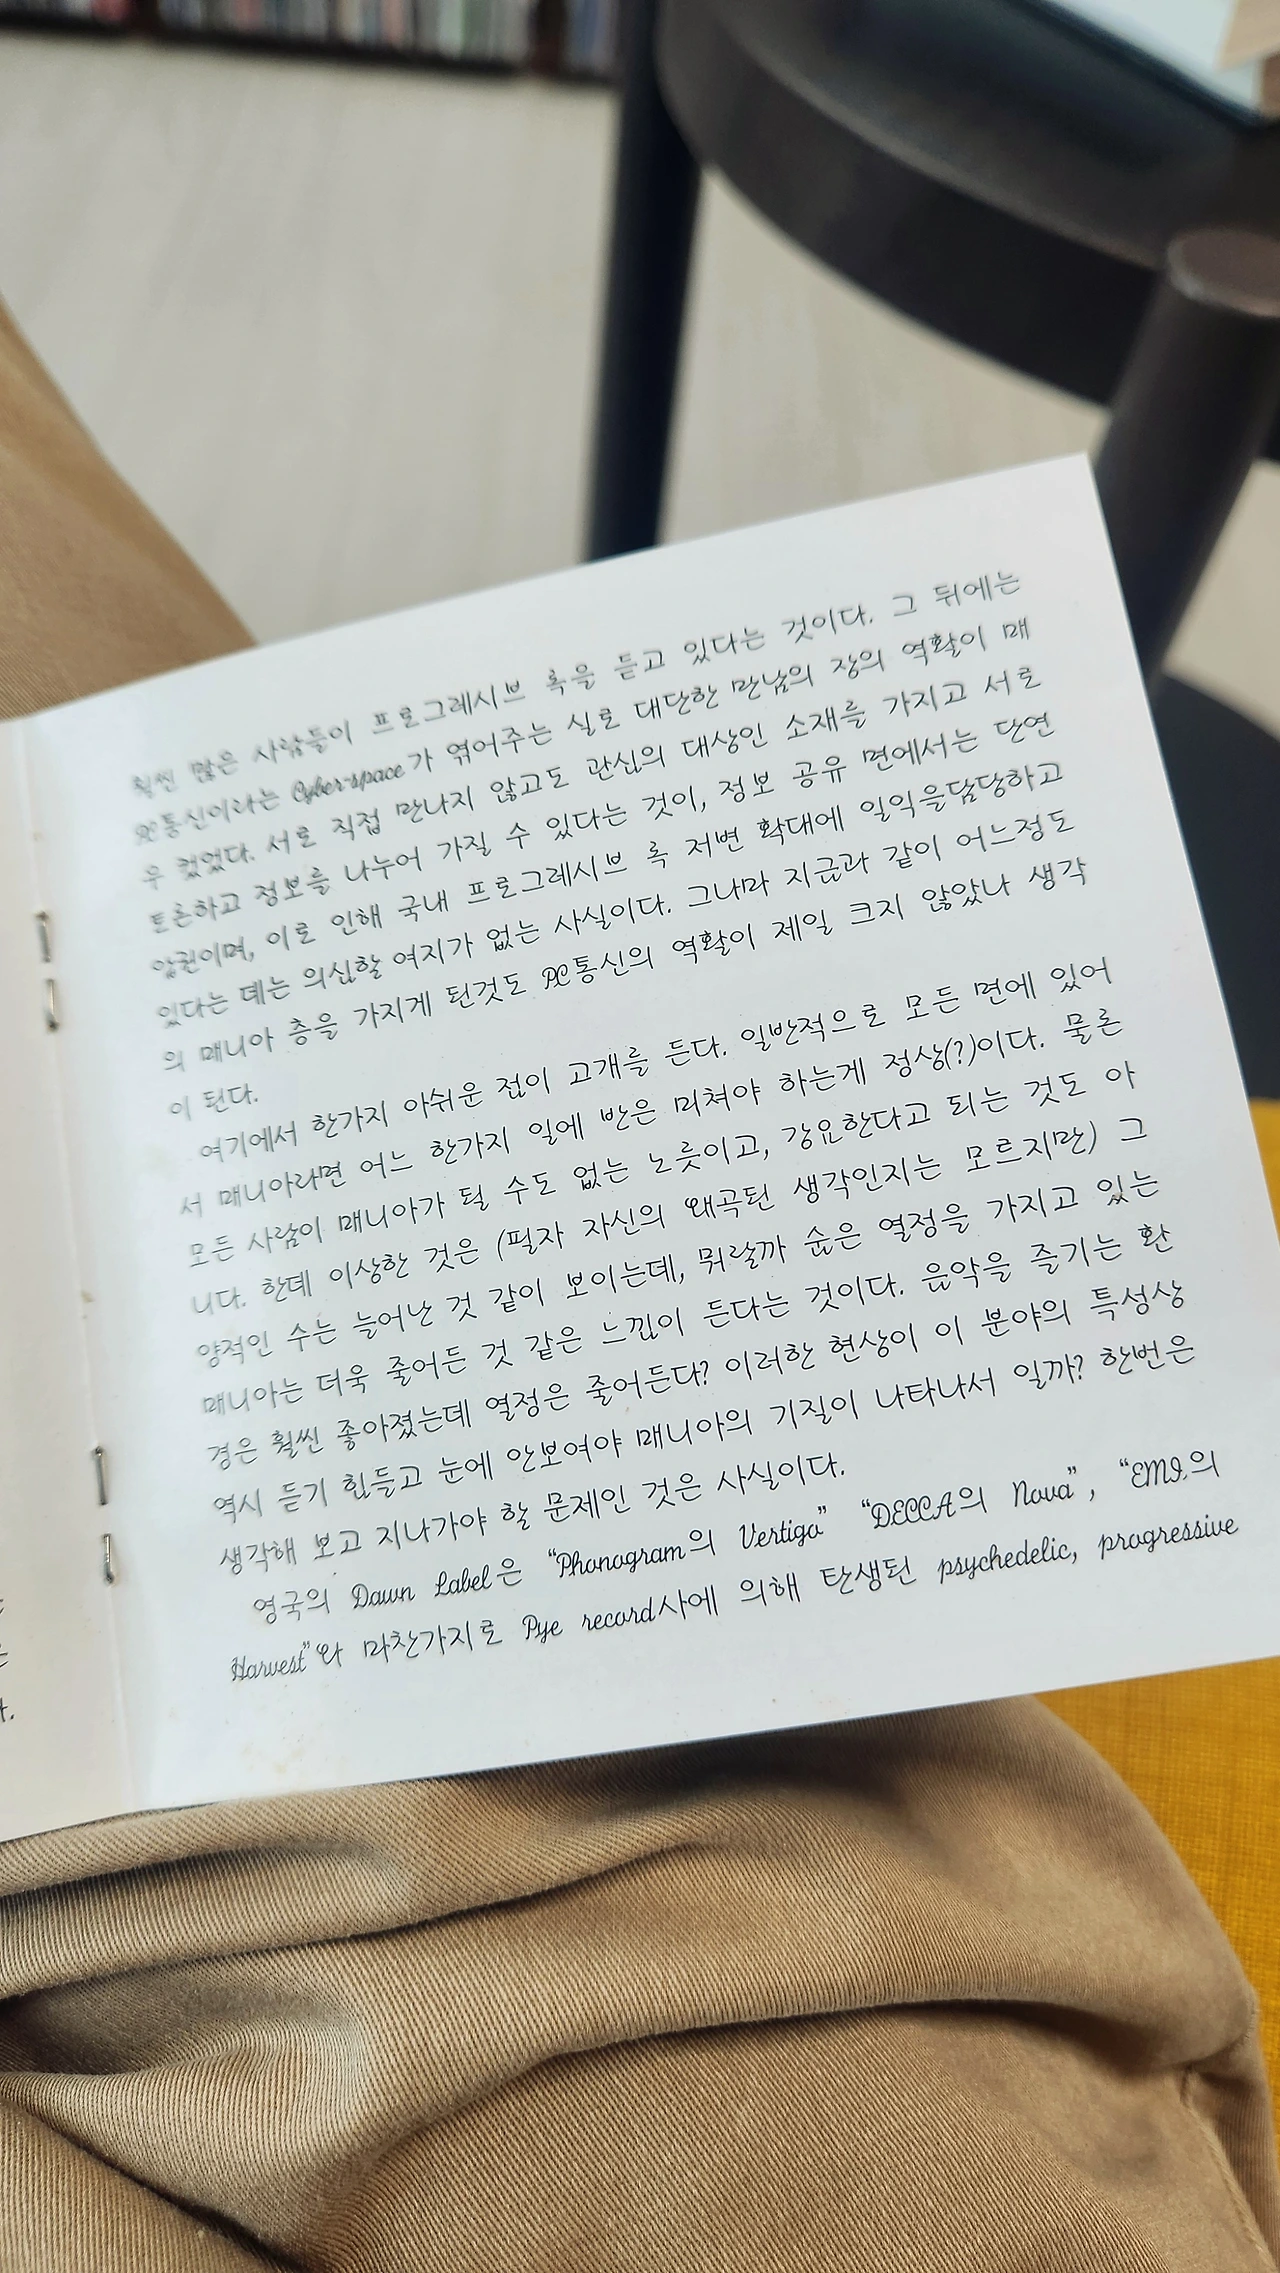 훨씬 많은 사람들이 프로그레시브 록을 듣고 있다는 것이다. 그 뒤에는
PC통신이라는 Cyber-space가 엮어주는 실로 대단한 만남의 장의 역활이 매
우 컸었다. 서로 직접 만나지 않고도 관심의 대상인 소재를 가지고 서로
토론하고 정보를 나누어 가질 수 있다는 것이, 정보 공유 면에서는 단연
압권이며, 이로 인해 국내 프로그레시브 록 저변 확대에 일익을담당하고
있다는 데는 의심할 여지가 없는 사실이다. 그나마 지금과 같이 어느정도
의 매니아 층을 가지게 된것도 PC통신의 역활이 제일 크지 않았나 생각
이 된다.
여기에서 한가지 아쉬운 점이 고개를 든다. 일반적으로 모든 면에 있어
서 매니아라면 어느 한가지 일에 반은 미쳐야 하는게 정상(?)이다. 물론
모든 사람이 매니아가 될 수도 없는 노릇이고, 강요한다고 되는 것도 아
니다. 한데 이상한 것은 (필자 자신의 왜곡된 생각인지는 모르지만) 그
양적인 수는 늘어난 것 같이 보이는데, 뭐랄까 숨은 열정을 가지고 있는
매니아는 더욱 줄어든 것 같은 느낌이 든다는 것이다. 음악을 즐기는 환
경은 훨씬 좋아졌는데 열정은 줄어든다? 이러한 현상이 이 분야의 특성상
역시 듣기 힘들고 눈에 안보여야 매니아의 기질이 나타나서 일까? 한번은
생각해 보고 지나가야 할 문제인 것은 사실이다.
영국의 Dawn Label은 “Phonogram의 Vertigo” “DECCA의 Nova”, “EMI의
Harvest”와 마찬가지로 Pye record사에 의해 탄생된 psychedelic, progressive